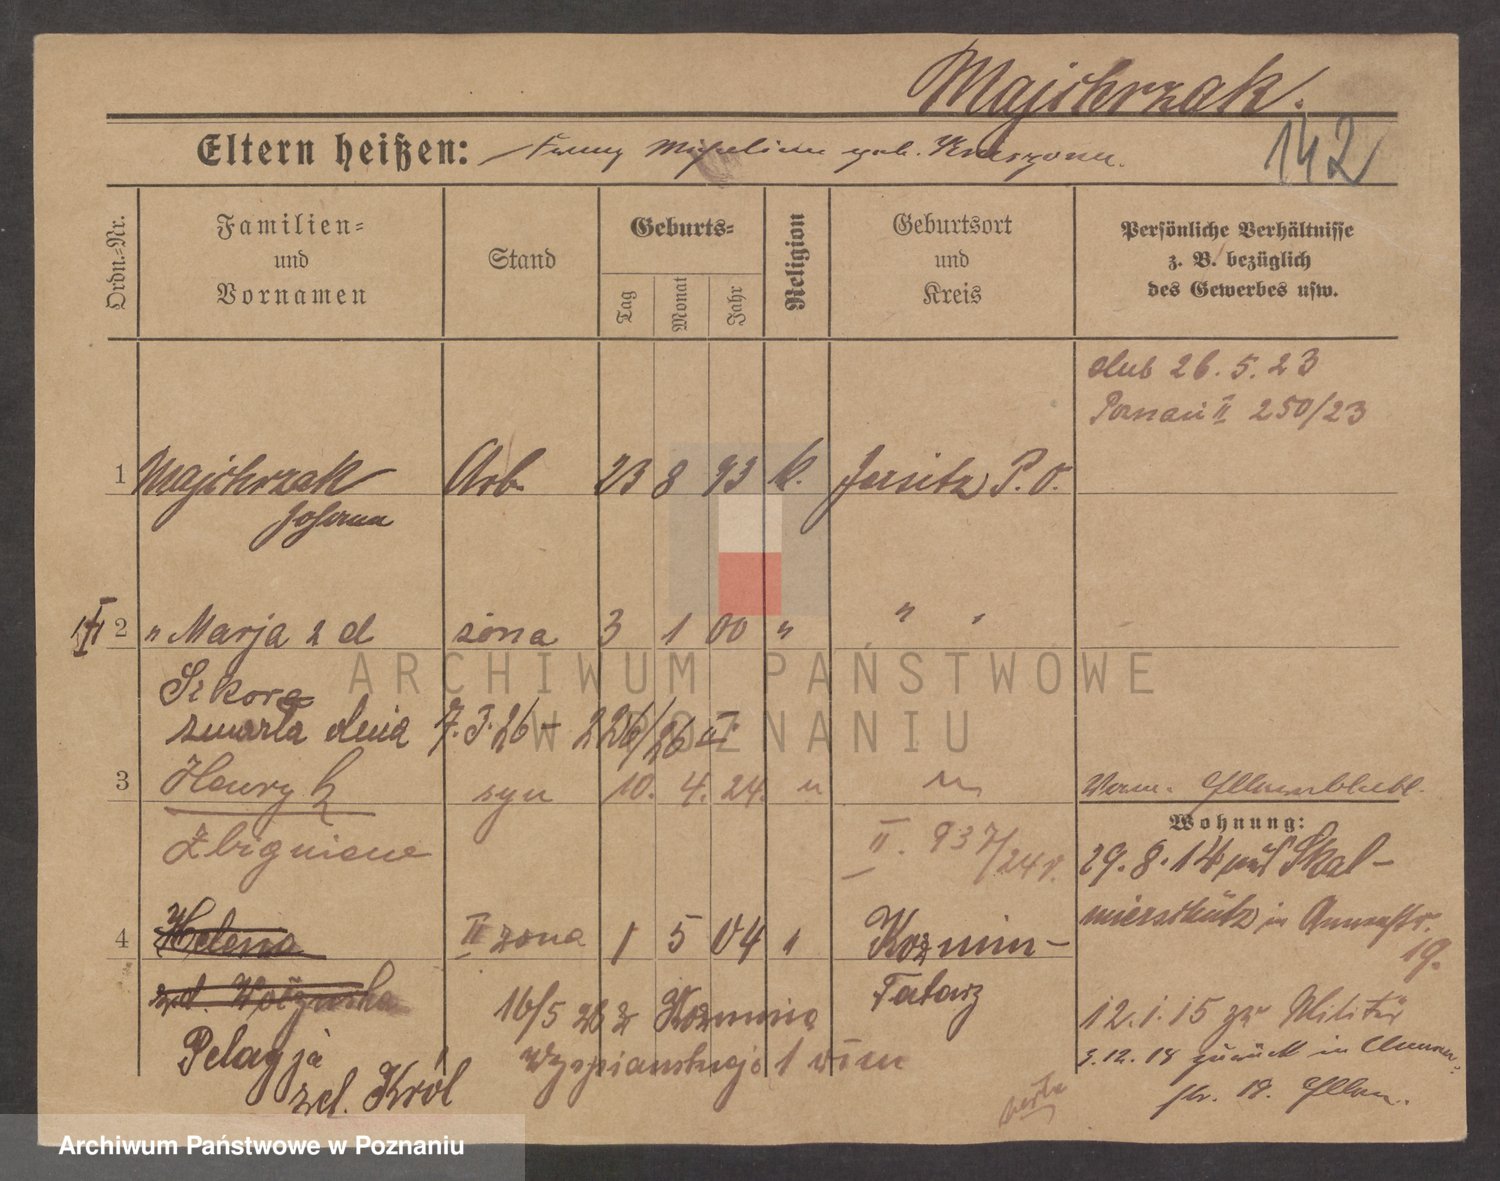 Majchrzak.
142
Eltern heißen: geb.
Ordn.-Nr.
Familien-
und
Vornamen
Stand
Geburts-
Tag
Monat
Jahr
Religion
Geburtsort
und
Kreis
Persönliche Verhältnisse
z. B. bezüglich
des Gewerbes usw.
ślub 26.5.23
Poznań II 250/23
1 Majchrzak Arb. 23 8 93 k. Jersitz P. O.
Johann
2 " Marja z d żona 3 1 00 " " "
Sikora
zmarła dnia 7.3.26 - 226/26 II
3 Henryk syn 10. 4. 24. "
Zbigniew
II. 937/24 r.
Wohnung:
29.8.14 auf Skal-
mierschütz in Annenstr.
19.
4 Helena II żona 1 5 04 " Koźmin-
zd. Tatarz
16/5 28 z Koźmina
Pelagja
zd. Król
12.1.15 zur Militär
3.12.18 zurück in
str. 18.
ARCHIWUM PAŃSTWOWE
W POZNANIU
Archiwum Państwowe w Poznaniu